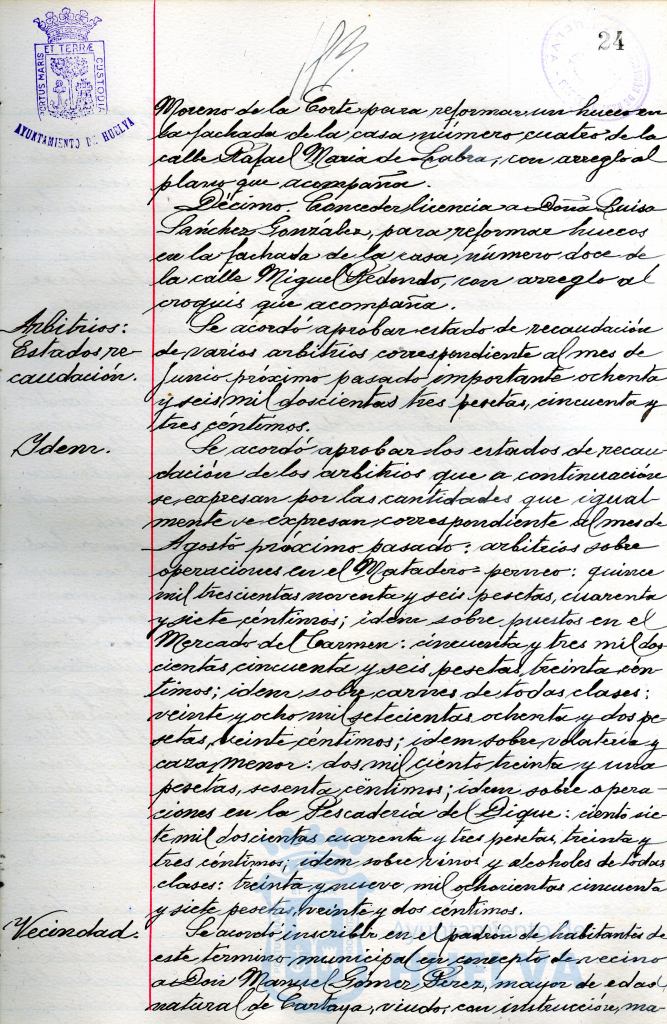 PORTUS MARIS ET TERRÆ CUSTODIA
AYUNTAMIENTO DE HUELVA
24
Moreno de la Corte para reformar un hueco en
la fachada de la casa número cuatro de la
calle Rafael Maria de Labra, con arreglo al
plano que acompaña.
Décimo. Conceder licencia a Doña Luisa
Sánchez González, para reformar huecos
en la fachada de la casa número doce de
la calle Miguel Redondo, con arreglo al
croquis que acompaña.
Arbitrios:
Estados re-
caudación.
Se acordó aprobar estado de recaudación
de varios arbitrios correspondiente al mes de
Junio próximo pasado importante ochenta
y seis mil doscientas tres pesetas, cincuenta y
tres céntimos.
Idem.
Se acordó aprobar los estados de recau-
dación de los arbitrios que a continuación
se expresan por las cantidades que igual-
mente se expresan correspondiente al mes de
Agosto próximo pasado: arbitrios sobre
operaciones en el Matadero=perneo: quince
mil trescientas noventa y seis pesetas, cuarenta
y siete céntimos; idem sobre puestos en el
Mercado del Carmen: cincuenta y tres mil dos-
cientas cincuenta y seis pesetas, treinta cén-
timos; idem sobre carnes de todas clases:
veinte y ocho mil setecientas ochenta y dos pe-
setas, veinte céntimos; idem sobre volateria y
caza menor: dos mil ciento treinta y una
pesetas, sesenta céntimos; idem sobre opera-
ciones en la Pescadería del Dique: ciento sie-
te mil doscientas cuarenta y tres pesetas, treinta y
tres céntimos; idem sobre vinos y alcoholes de todas
clases: treinta y nueve mil ochocientas cincuenta
y siete pesetas, veinte y dos céntimos.
Vecindad.
Se acordó inscribir en el padrón de habitantes de
este termino municipal en concepto de vecino
a Don Manuel Gómez Perez, mayor de edad
natural de Cartaya, viudo, con instrucción, ma-
Ayuntamiento de
HUELVA